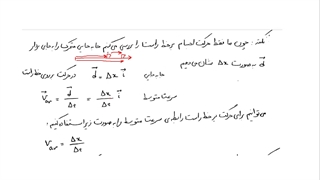 نکته: چون ما فقط حرکت اجسام بر خط راست را بررسی می‌کنیم جابه‌جایی متحرک را به جای بردار
d⃗ به صورت Δx نشان می‌دهیم
جابه‌جایی d⃗ = Δx i⃗ در حرکت بر روی خط راست
سرعت متوسط V⃗av = d⃗/Δt = Δx/Δt i⃗
می‌توانیم برای حرکت بر خط راست رابطه‌ی سرعت متوسط را به صورت زیر استفاده کنیم:
Vav = Δx/Δt